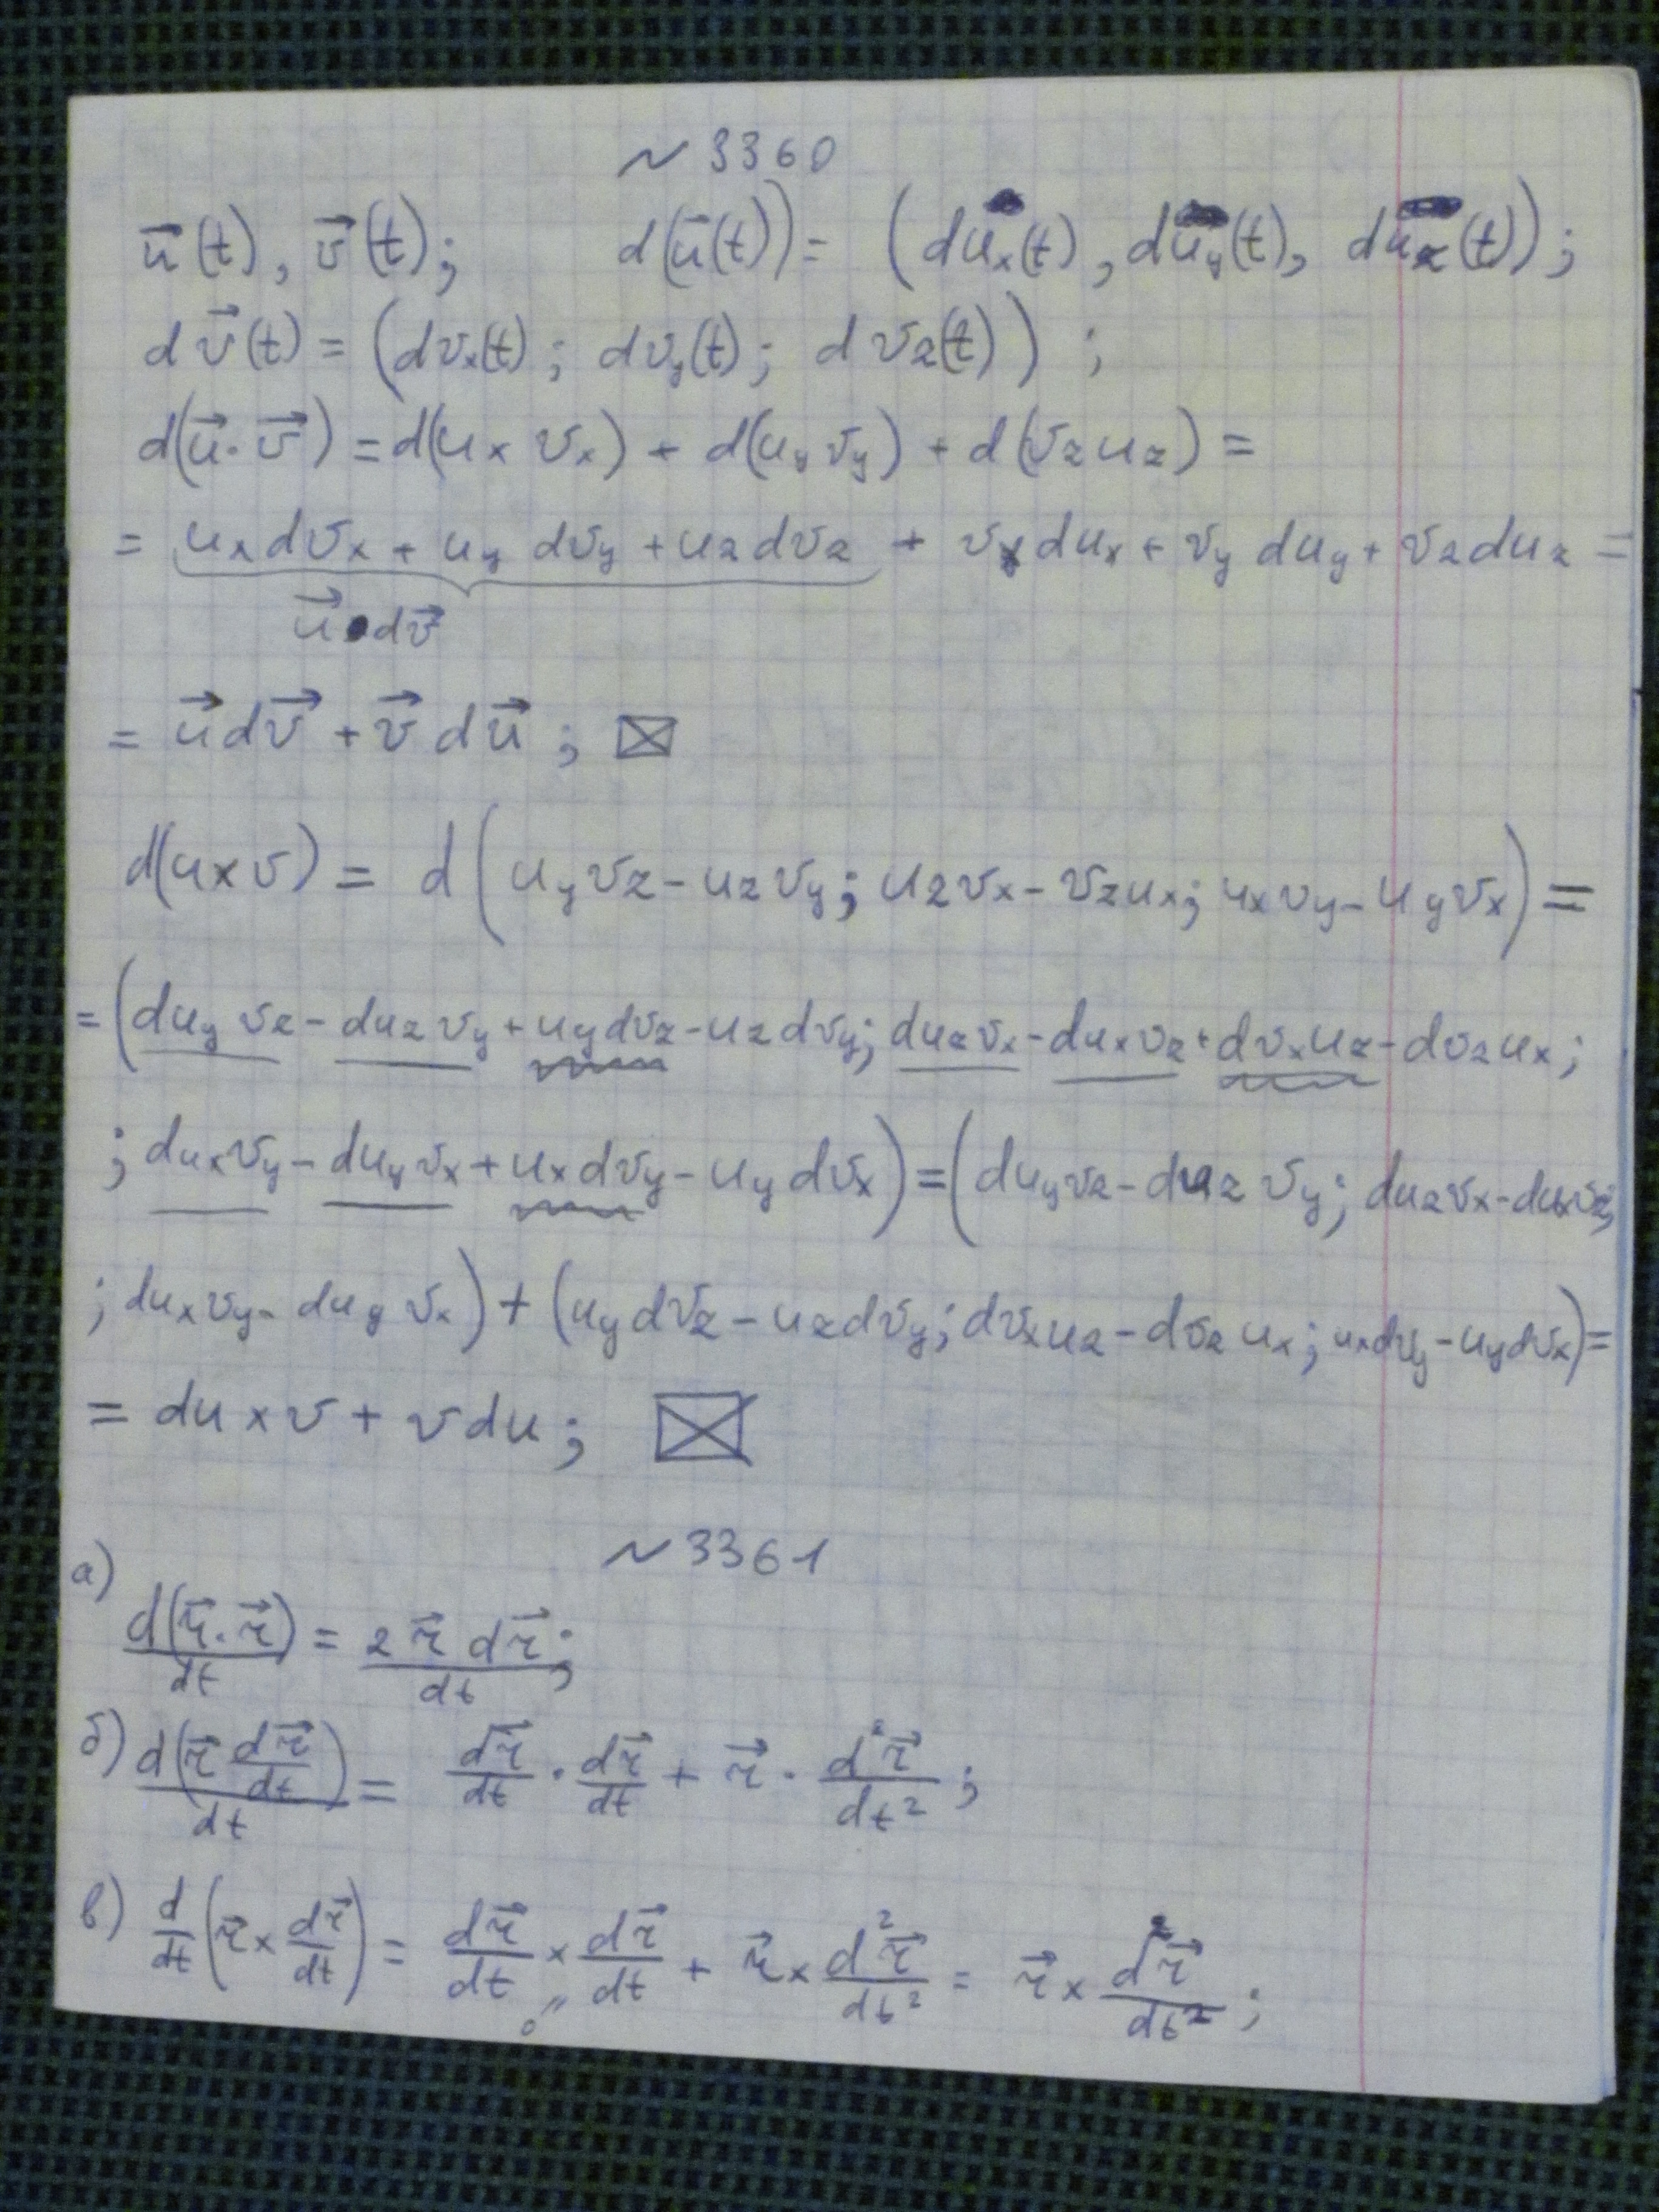 ~ 3360
u⃗(t), v⃗(t); d(u⃗(t)) = (duₓ(t), du_y(t), du_z(t));
dv⃗(t) = (dvₓ(t); dv_y(t); dv_z(t));
d(u⃗·v⃗) = d(uₓ vₓ) + d(u_y v_y) + d(v_z u_z) =
= uₓdvₓ + u_y dv_y + u_z dv_z + vₓduₓ + v_y du_y + v_z du_z =
u⃗·dv⃗
= u⃗dv⃗ + v⃗ du⃗; ☒
d(u×v) = d(u_y v_z - u_z v_y; u_z vₓ - v_z uₓ; uₓ v_y - u_y vₓ) =
= (du_y v_z - du_z v_y + u_y dv_z - u_z dv_y; du_z vₓ - duₓ v_z + dvₓ u_z - dv_z uₓ;
; duₓ v_y - du_y vₓ + uₓ dv_y - u_y dvₓ) = (du_y v_z - du_z v_y; du_z vₓ - duₓ v_z;
; duₓ v_y - du_y vₓ) + (u_y dv_z - u_z dv_y; dvₓ u_z - dv_z uₓ; uₓ dv_y - u_y dvₓ) =
= du × v + v du; ☒
~ 3361
а) d(r⃗·r⃗)/dt = 2 r⃗ dr⃗/dt;
б) d(r⃗ dr⃗/dt)/dt = dr⃗/dt · dr⃗/dt + r⃗ · d²r⃗/dt²;
в) d/dt (r⃗ × dr⃗/dt) = dr⃗/dt × dr⃗/dt + r⃗ × d²r⃗/dt² = r⃗ × d²r⃗/dt²;
"0